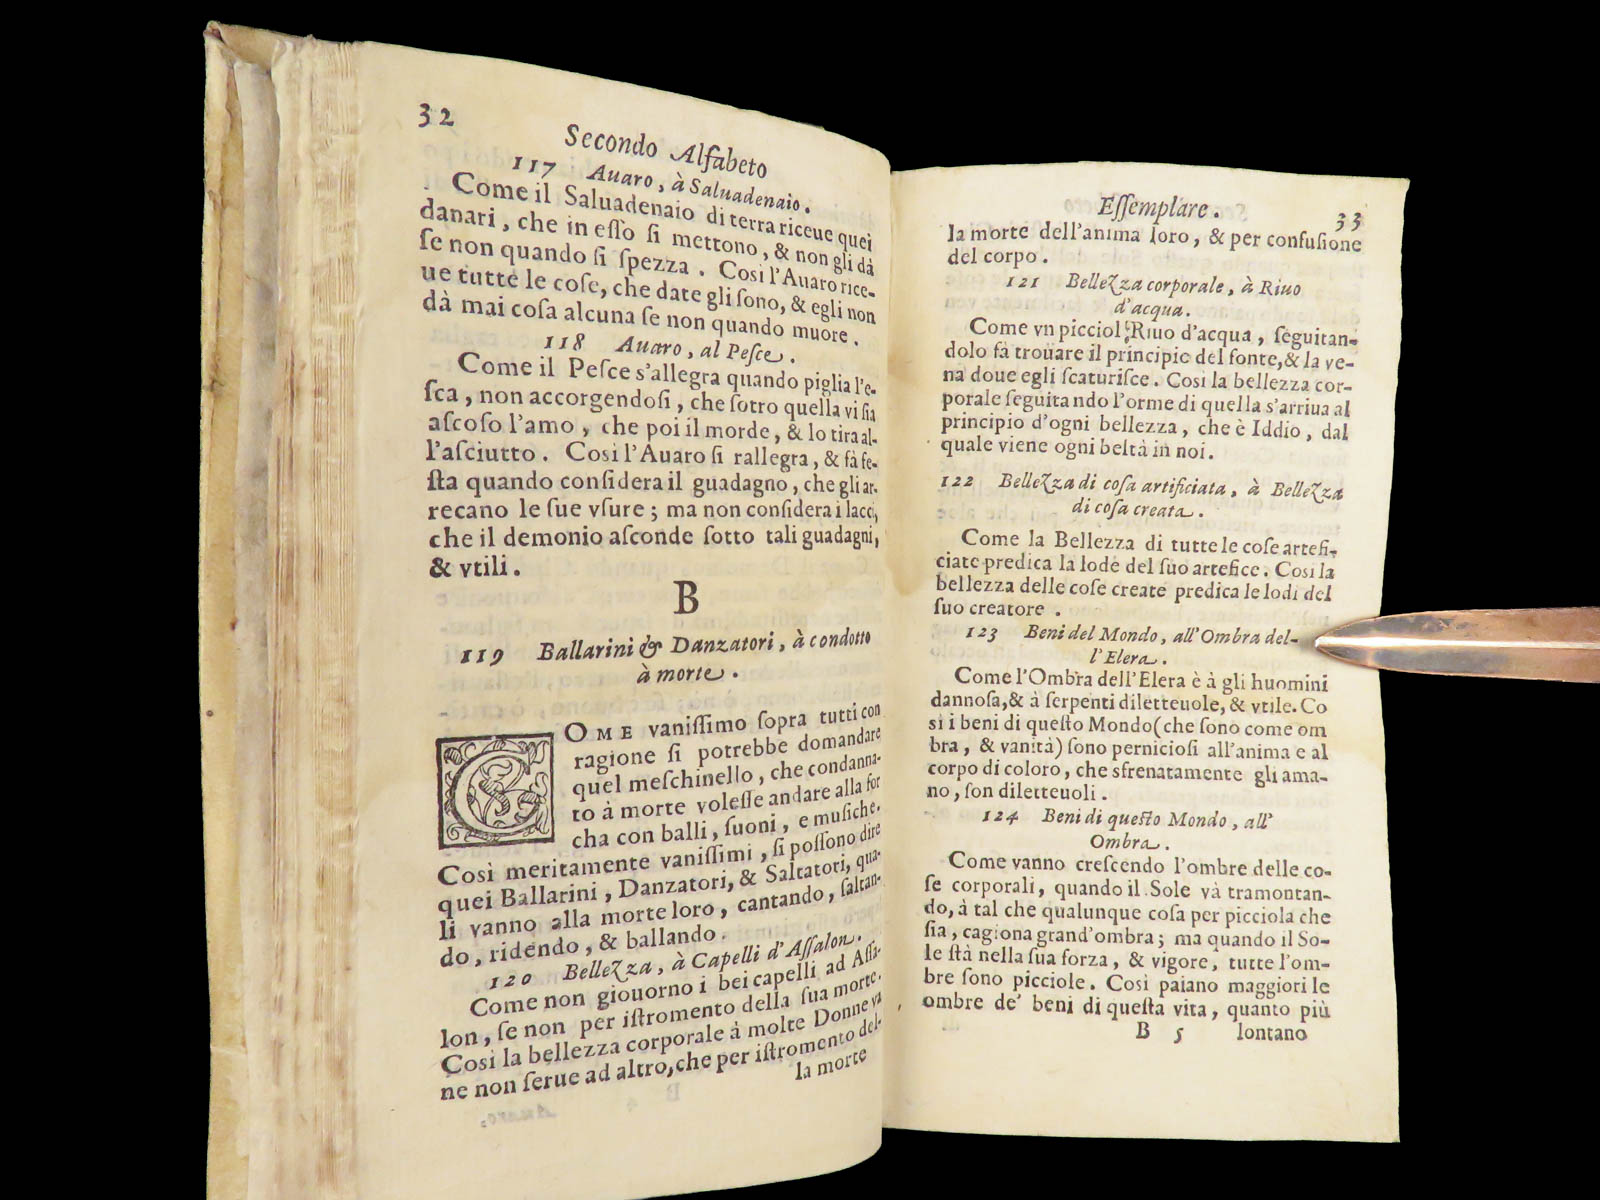 32
Secondo Alfabeto
117 Auaro, à Saluadenaio.
Come il Saluadenaio di terra riceue quei
danari, che in eſſo ſi mettono, & non gli dà
ſe non quando ſi ſpezza. Coſi l'Auaro rice-
ue tutte le coſe, che date gli ſono, & egli non
dà mai coſa alcuna ſe non quando muore.
118 Auaro, al Peſce.
Come il Peſce s'allegra quando piglia l'e-
ſca, non accorgendoſi, che ſotro quella vi ſia
aſcoſo l'amo, che poi il morde, & lo tira al-
l'aſciutto. Coſi l'Auaro ſi rallegra, & fà fe-
ſta quando conſidera il guadagno, che gli ar-
recano le ſue vſure; ma non conſidera i lacci,
che il demonio aſconde ſotto tali guadagni,
& vtili.
B
119 Ballarini & Danzatori, à condotto
à morte.
COME vaniſſimo ſopra tutti con
ragione ſi potrebbe domandare
quel meſchinello, che condanna-
to à morte voleſſe andare alla for
cha con balli, ſuoni, e muſiche.
Coſi meritamente vaniſſimi, ſi poſſono dire
quei Ballarini, Danzatori, & Saltatori, qua-
li vanno alla morte loro, cantando, ſaltan-
do, ridendo, & ballando.
120 Bellezza, à Capelli d'Aſſalon.
Come non giouorno i bei capelli ad Aſſa-
lon, ſe non per iſtromento della ſua morte.
Coſi la bellezza corporale à molte Donne va
ne non ſerue ad altro, che per iſtromento del-
la morte
Eſſemplare. 33
la morte dell'anima loro, & per confuſione
del corpo.
121 Bellezza corporale, à Riuo
d'acqua.
Come vn picciol Riuo d'acqua, ſeguitan-
dolo fà trouare il principio del fonte, & la ve-
na doue egli ſcaturiſce. Coſi la bellezza cor-
porale ſeguitando l'orme di quella s'arriua al
principio d'ogni bellezza, che è Iddio, dal
quale viene ogni beltà in noi.
122 Bellezza di coſa artificiata, à Bellezza
di coſa creata.
Come la Bellezza di tutte le coſe artefi-
ciate predica la lode del ſuo artefice. Coſi la
bellezza delle coſe create predica le lodi del
ſuo creatore.
123 Beni del Mondo, all'Ombra del-
l'Elera.
Come l'Ombra dell'Elera è à gli huomini
dannoſa, & à ſerpenti diletteuole, & vtile. Co
ſi i beni di queſto Mondo (che ſono come om
bra, & vanità) ſono pernicioſi all'anima e al
corpo di coloro, che sfrenatamente gli ama-
no, ſon diletteuoli.
124 Beni di queſto Mondo, all'
Ombra.
Come vanno creſcendo l'ombre delle co-
ſe corporali, quando il Sole và tramontan-
do, à tal che qualunque coſa per picciola che
ſia, cagiona grand'ombra; ma quando il So-
le ſtà nella ſua forza, & vigore, tutte l'om-
bre ſono picciole. Coſi paiano maggiori le
ombre de' beni di queſta vita, quanto più
B 5 lontano